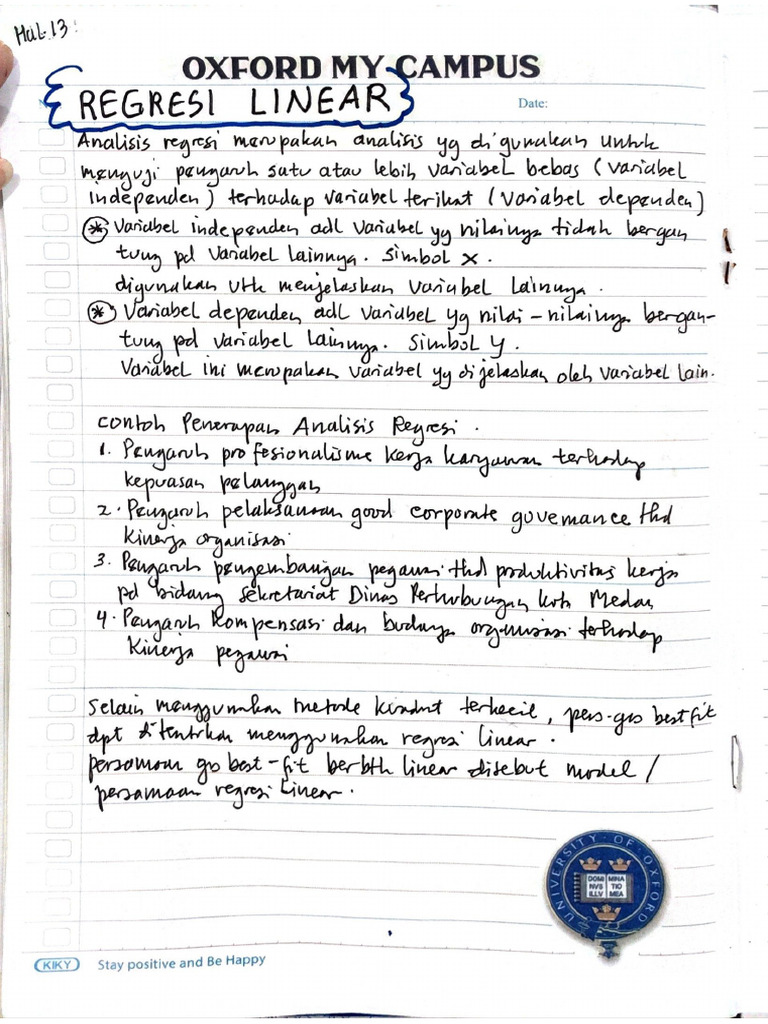 Hal. 13:
OXFORD MY CAMPUS
REGRESI LINEAR
Date:
Analisis regresi merupakan analisis yg di gunakan untuk
menguji pengaruh satu atau lebih variabel bebas (variabel
independen) terhadap variabel terikat (variabel dependen)
* Variabel independen adl variabel yg nilainya tidak bergan
tung pd variabel lainnya. Simbol X.
digunakan utk menjelaskan variabel lainnya.
* Variabel dependen adl variabel yg nilai-nilainya bergan-
tung pd variabel lainnya. Simbol Y.
Variabel ini merupakan variabel yg dijelaskan oleh variabel lain.
Contoh Penerapan Analisis Regresi.
1. Pengaruh profesionalisme kerja karyawan terhadap
kepuasan pelanggan
2. Pengaruh pelaksanaan good corporate governance thd
kinerja organisasi
3. Pengaruh pengembangan pegawai thd produktivitas kerja
pd bidang sekretariat Dinas Perhubungan kota Medan
4. Pengaruh kompensasi dan budaya organisasi terhadap
kinerja pegawai
Selain menggunakan metode kuadrat terkecil, pers. grs best fit
dpt ditentukan menggunakan regresi linear.
persamaan grs best-fit berbtk linear disebut model /
persamaan regresi linear.
UNIVERSITY OF OXFORD
DOMI MINA
NVS TIO
ILLV MEA
KIKY Stay positive and Be Happy